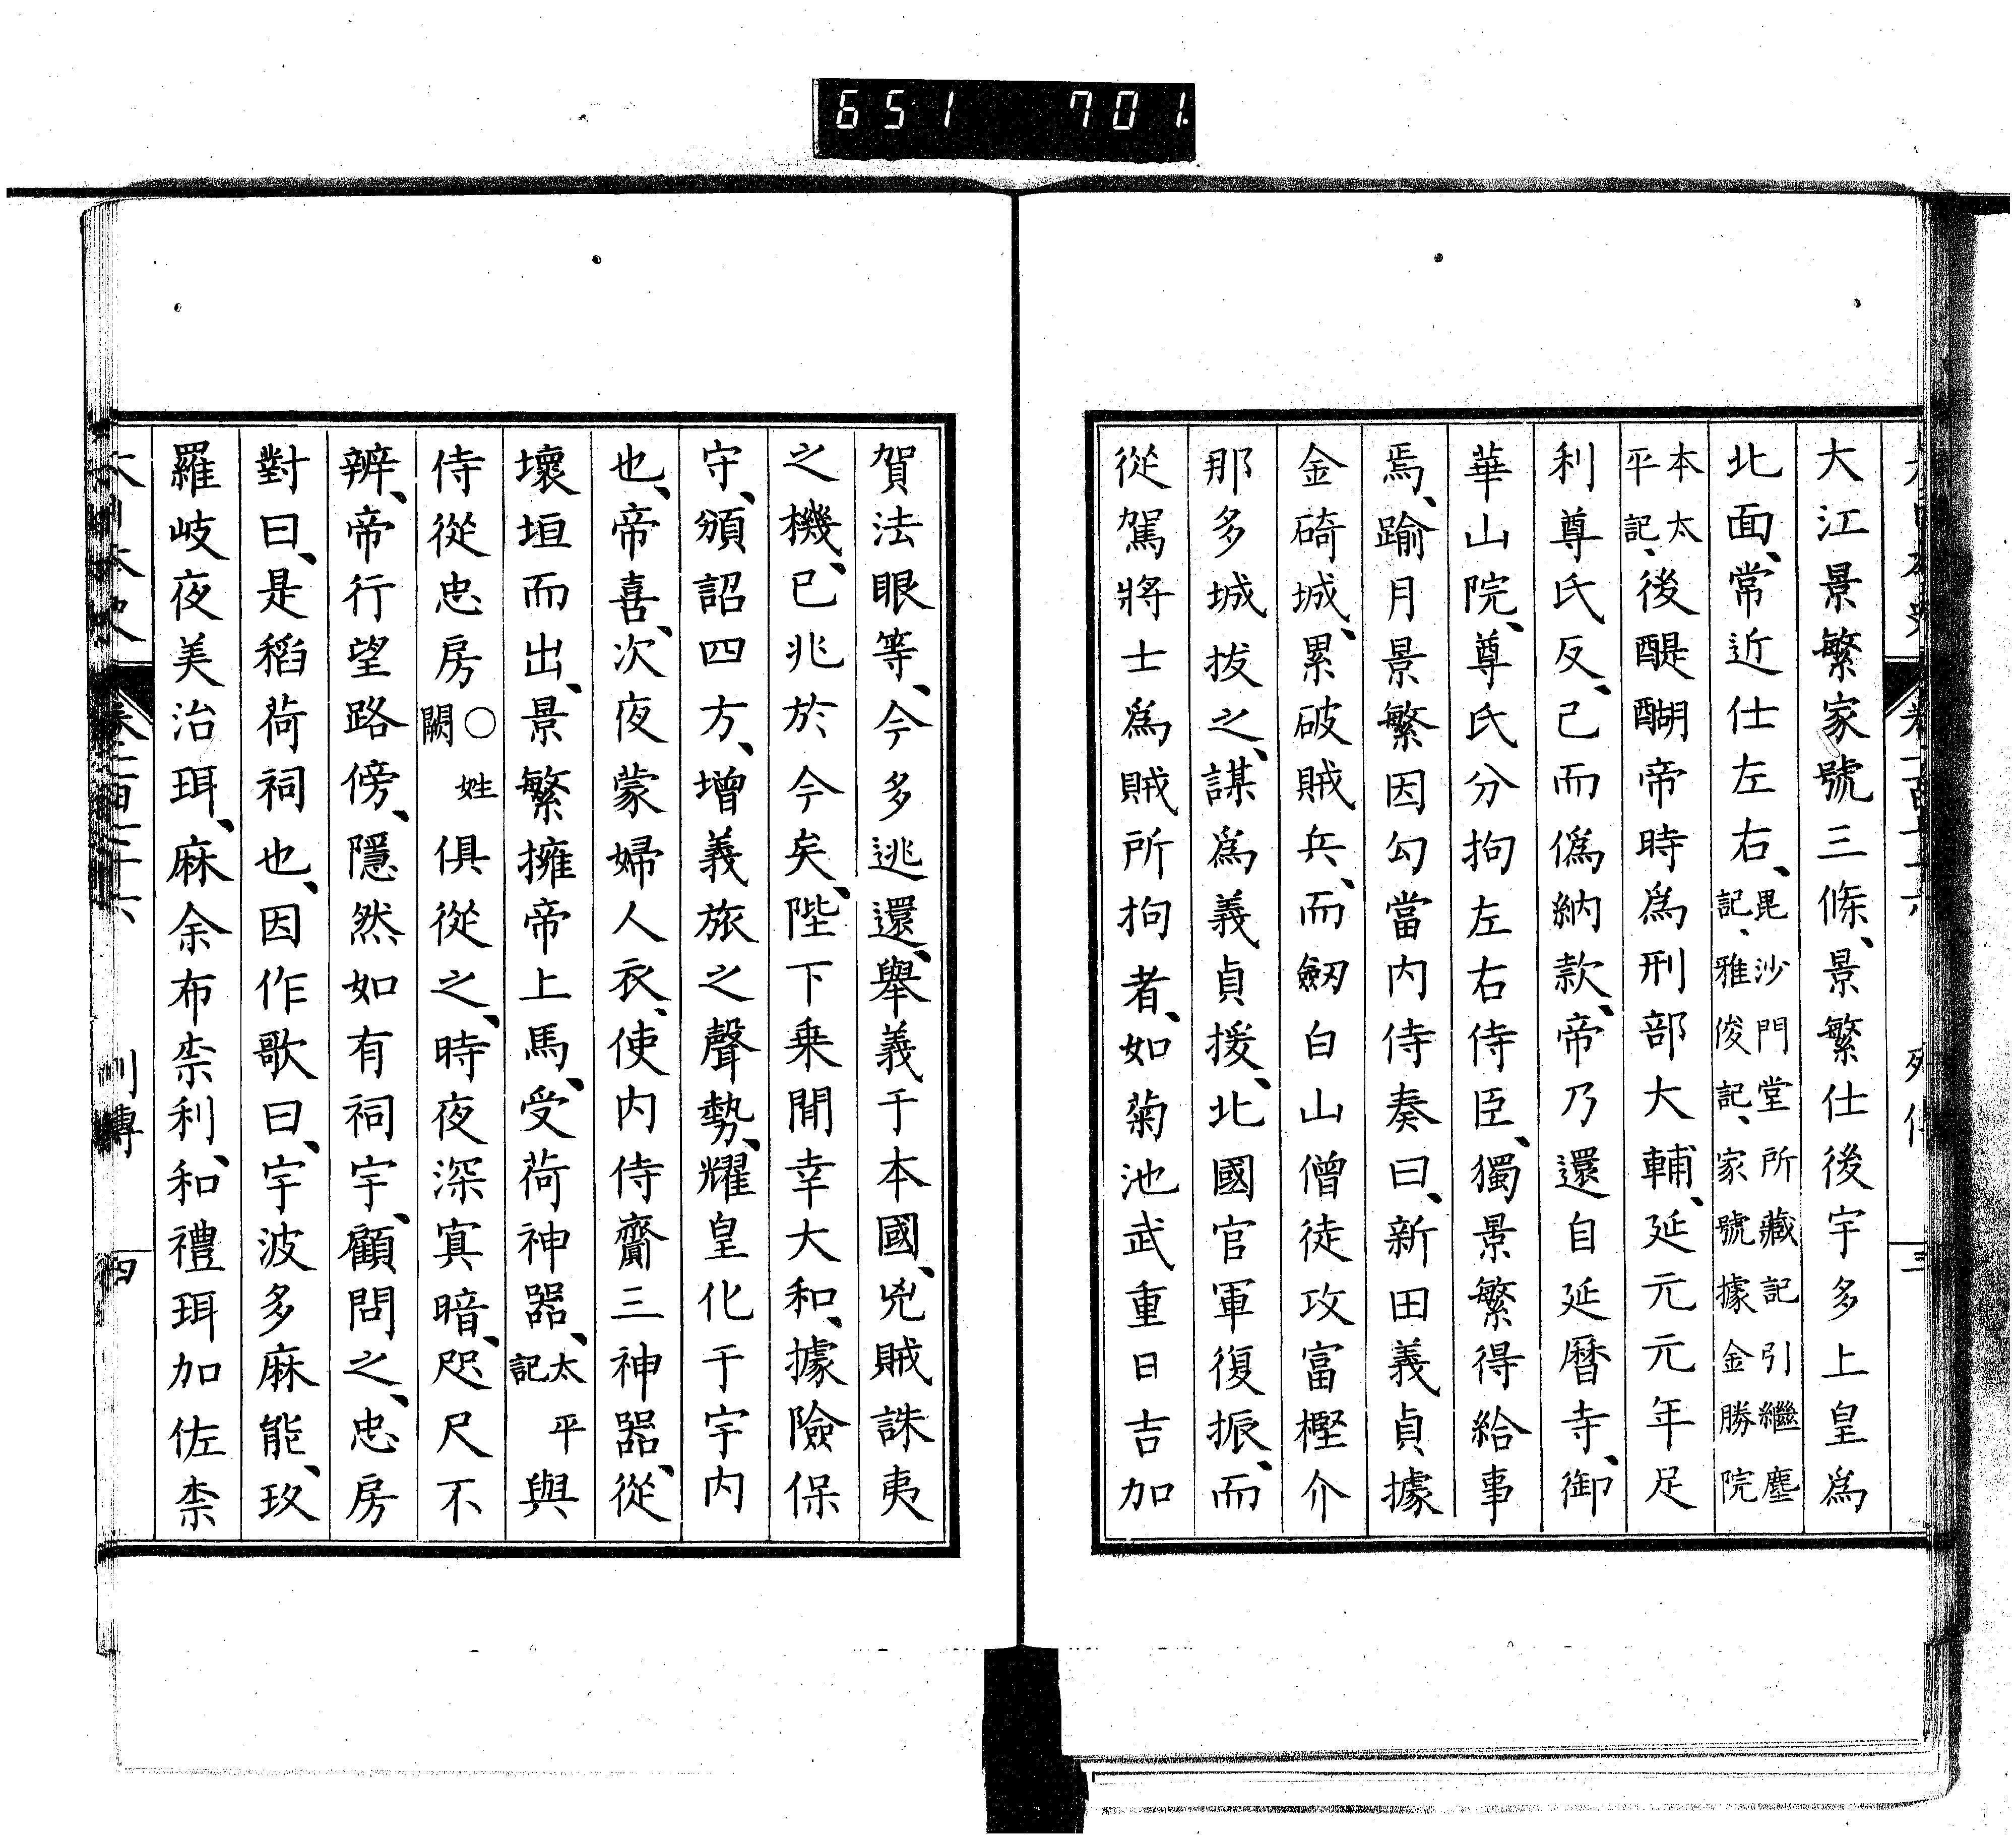 651 701
大江景繁家號三條、景繁仕後宇多上皇爲
北面、常近仕左右、毘沙門堂所藏記引繼塵記、雅俊記、家號據金勝院
本太平記、後醍醐帝時爲刑部大輔、延元元年足
利尊氏反、已而僞納款、帝乃還自延曆寺、御
華山院、尊氏分拘左右侍臣、獨景繁得給事
焉、踰月景繁因勾當内侍奏曰、新田義貞據
金碕城、累破賊兵、而劔白山僧徒攻富樫介
那多城拔之、謀爲義貞援、北國官軍復振、而
從駕將士爲賊所拘者、如菊池武重日吉加
賀法眼等、今多逃還、舉義于本國、兇賊誅夷
之機、已兆於今矣、陛下乗間幸大和、據險保
守、頒詔四方、增義旅之聲勢、耀皇化于宇内
也、帝喜、次夜蒙婦人衣、使内侍齎三神器、從
壞垣而出、景繁擁帝上馬、受荷神器、太平記與
侍從忠房○姓闕俱從之、時夜深寘暗、咫尺不
辨、帝行望路傍、隱然如有祠宇、顧問之、忠房
對曰、是稻荷祠也、因作歌曰、宇波多麻能、玖
羅岐夜美治珥、麻余布柰利、和禮珥加佐柰
大日本史 卷一百七十六 列傳 四